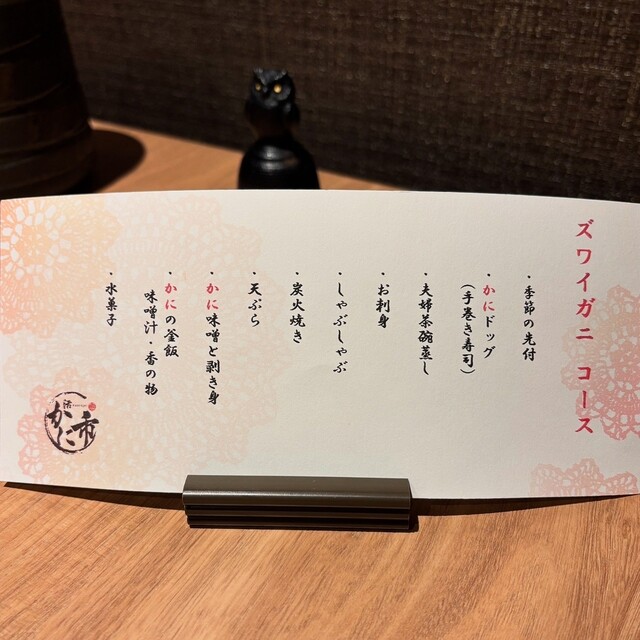 ズワイガニ コース
・季節の先付
・かにドッグ
(手巻き寿司)
・夫婦茶碗蒸し
・お刺身
・しゃぶしゃぶ
・炭火焼き
・天ぷら
・かに味噌と剥き身
・かにの釜飯
味噌汁・香の物
・水菓子
かに市